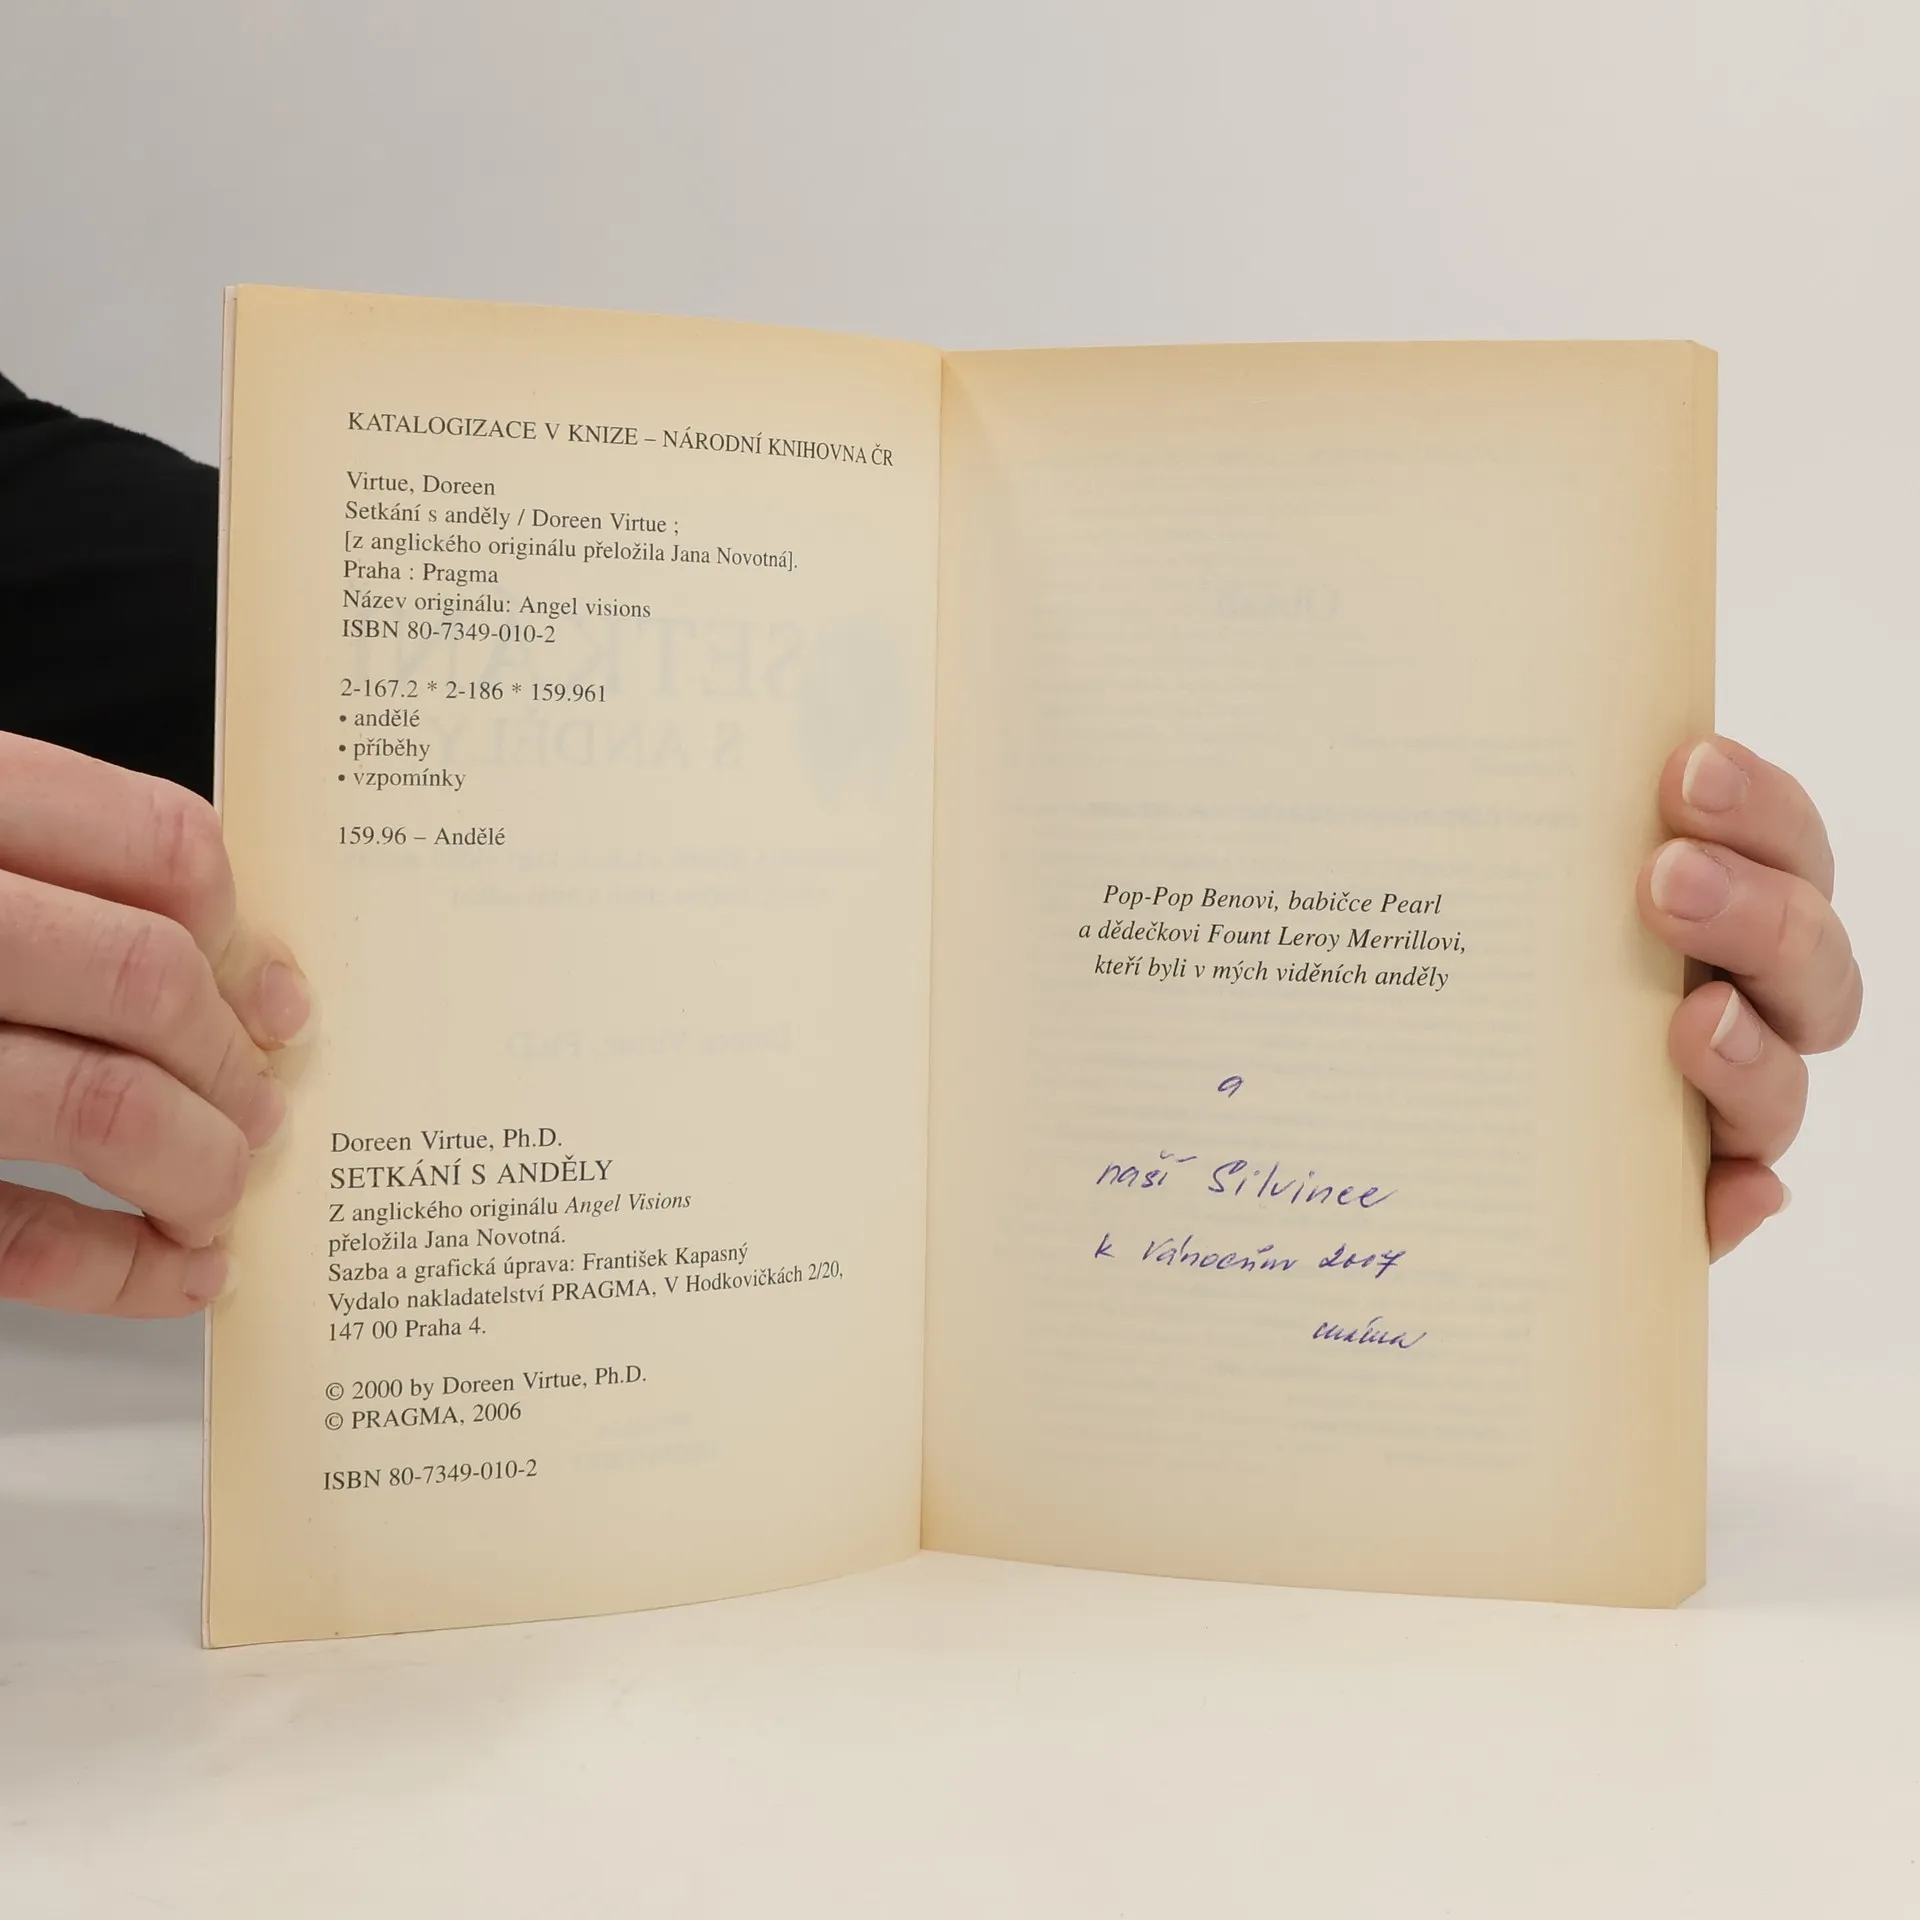 KATALOGIZACE V KNIZE – NÁRODNÍ KNIHOVNA ČR
Virtue, Doreen
Setkání s anděly / Doreen Virtue ;
[z anglického originálu přeložila Jana Novotná].
Praha : Pragma
Název originálu: Angel visions
ISBN 80-7349-010-2
2-167.2 * 2-186 * 159.961
• andělé
• příběhy
• vzpomínky
159.96 – Andělé
Doreen Virtue, Ph.D.
SETKÁNÍ S ANDĚLY
Z anglického originálu Angel Visions
přeložila Jana Novotná.
Sazba a grafická úprava: František Kapasný
Vydalo nakladatelství PRAGMA, V Hodkovičkách 2/20,
147 00 Praha 4.
© 2000 by Doreen Virtue, Ph.D.
© PRAGMA, 2006
ISBN 80-7349-010-2
Pop-Pop Benovi, babičce Pearl
a dědečkovi Fount Leroy Merrillovi,
kteří byli v mých viděních anděly
a
naší Silvince
k Vánocům 2007
máma